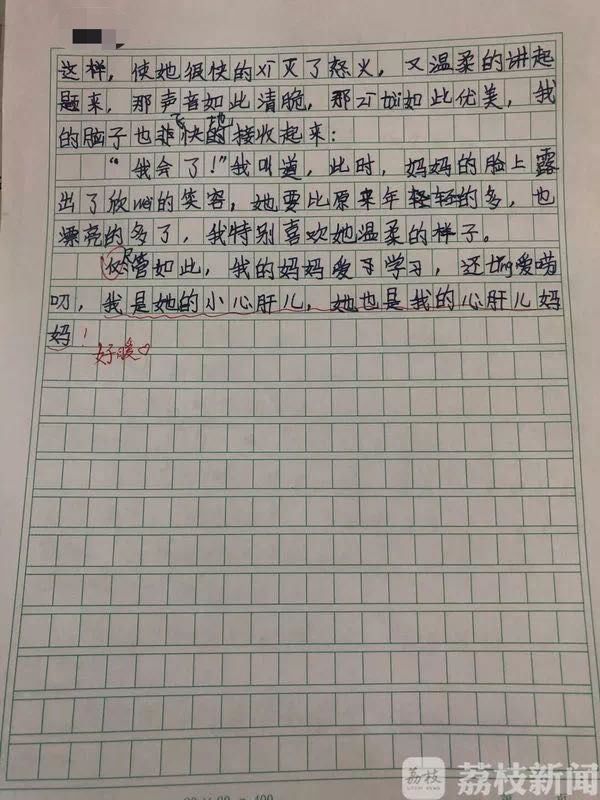 这样，使她很快的xī灭了怒火，又温柔的讲起
题来，那声音如此清脆，那zī tài如此优美，我
的脑子也飞快地接收起来：
“我会了！”我叫道，此时，妈妈的脸上露
出了欣wèi的笑容，她要比原来年轻的多，也
漂亮的多了，我特别喜欢她温柔的样子。
尽管如此，我的妈妈爱学习，还tǐng爱唠
叨，我是她的小心肝儿，她也是我的心肝儿妈
妈！
好暖♡
荔枝 荔枝新闻